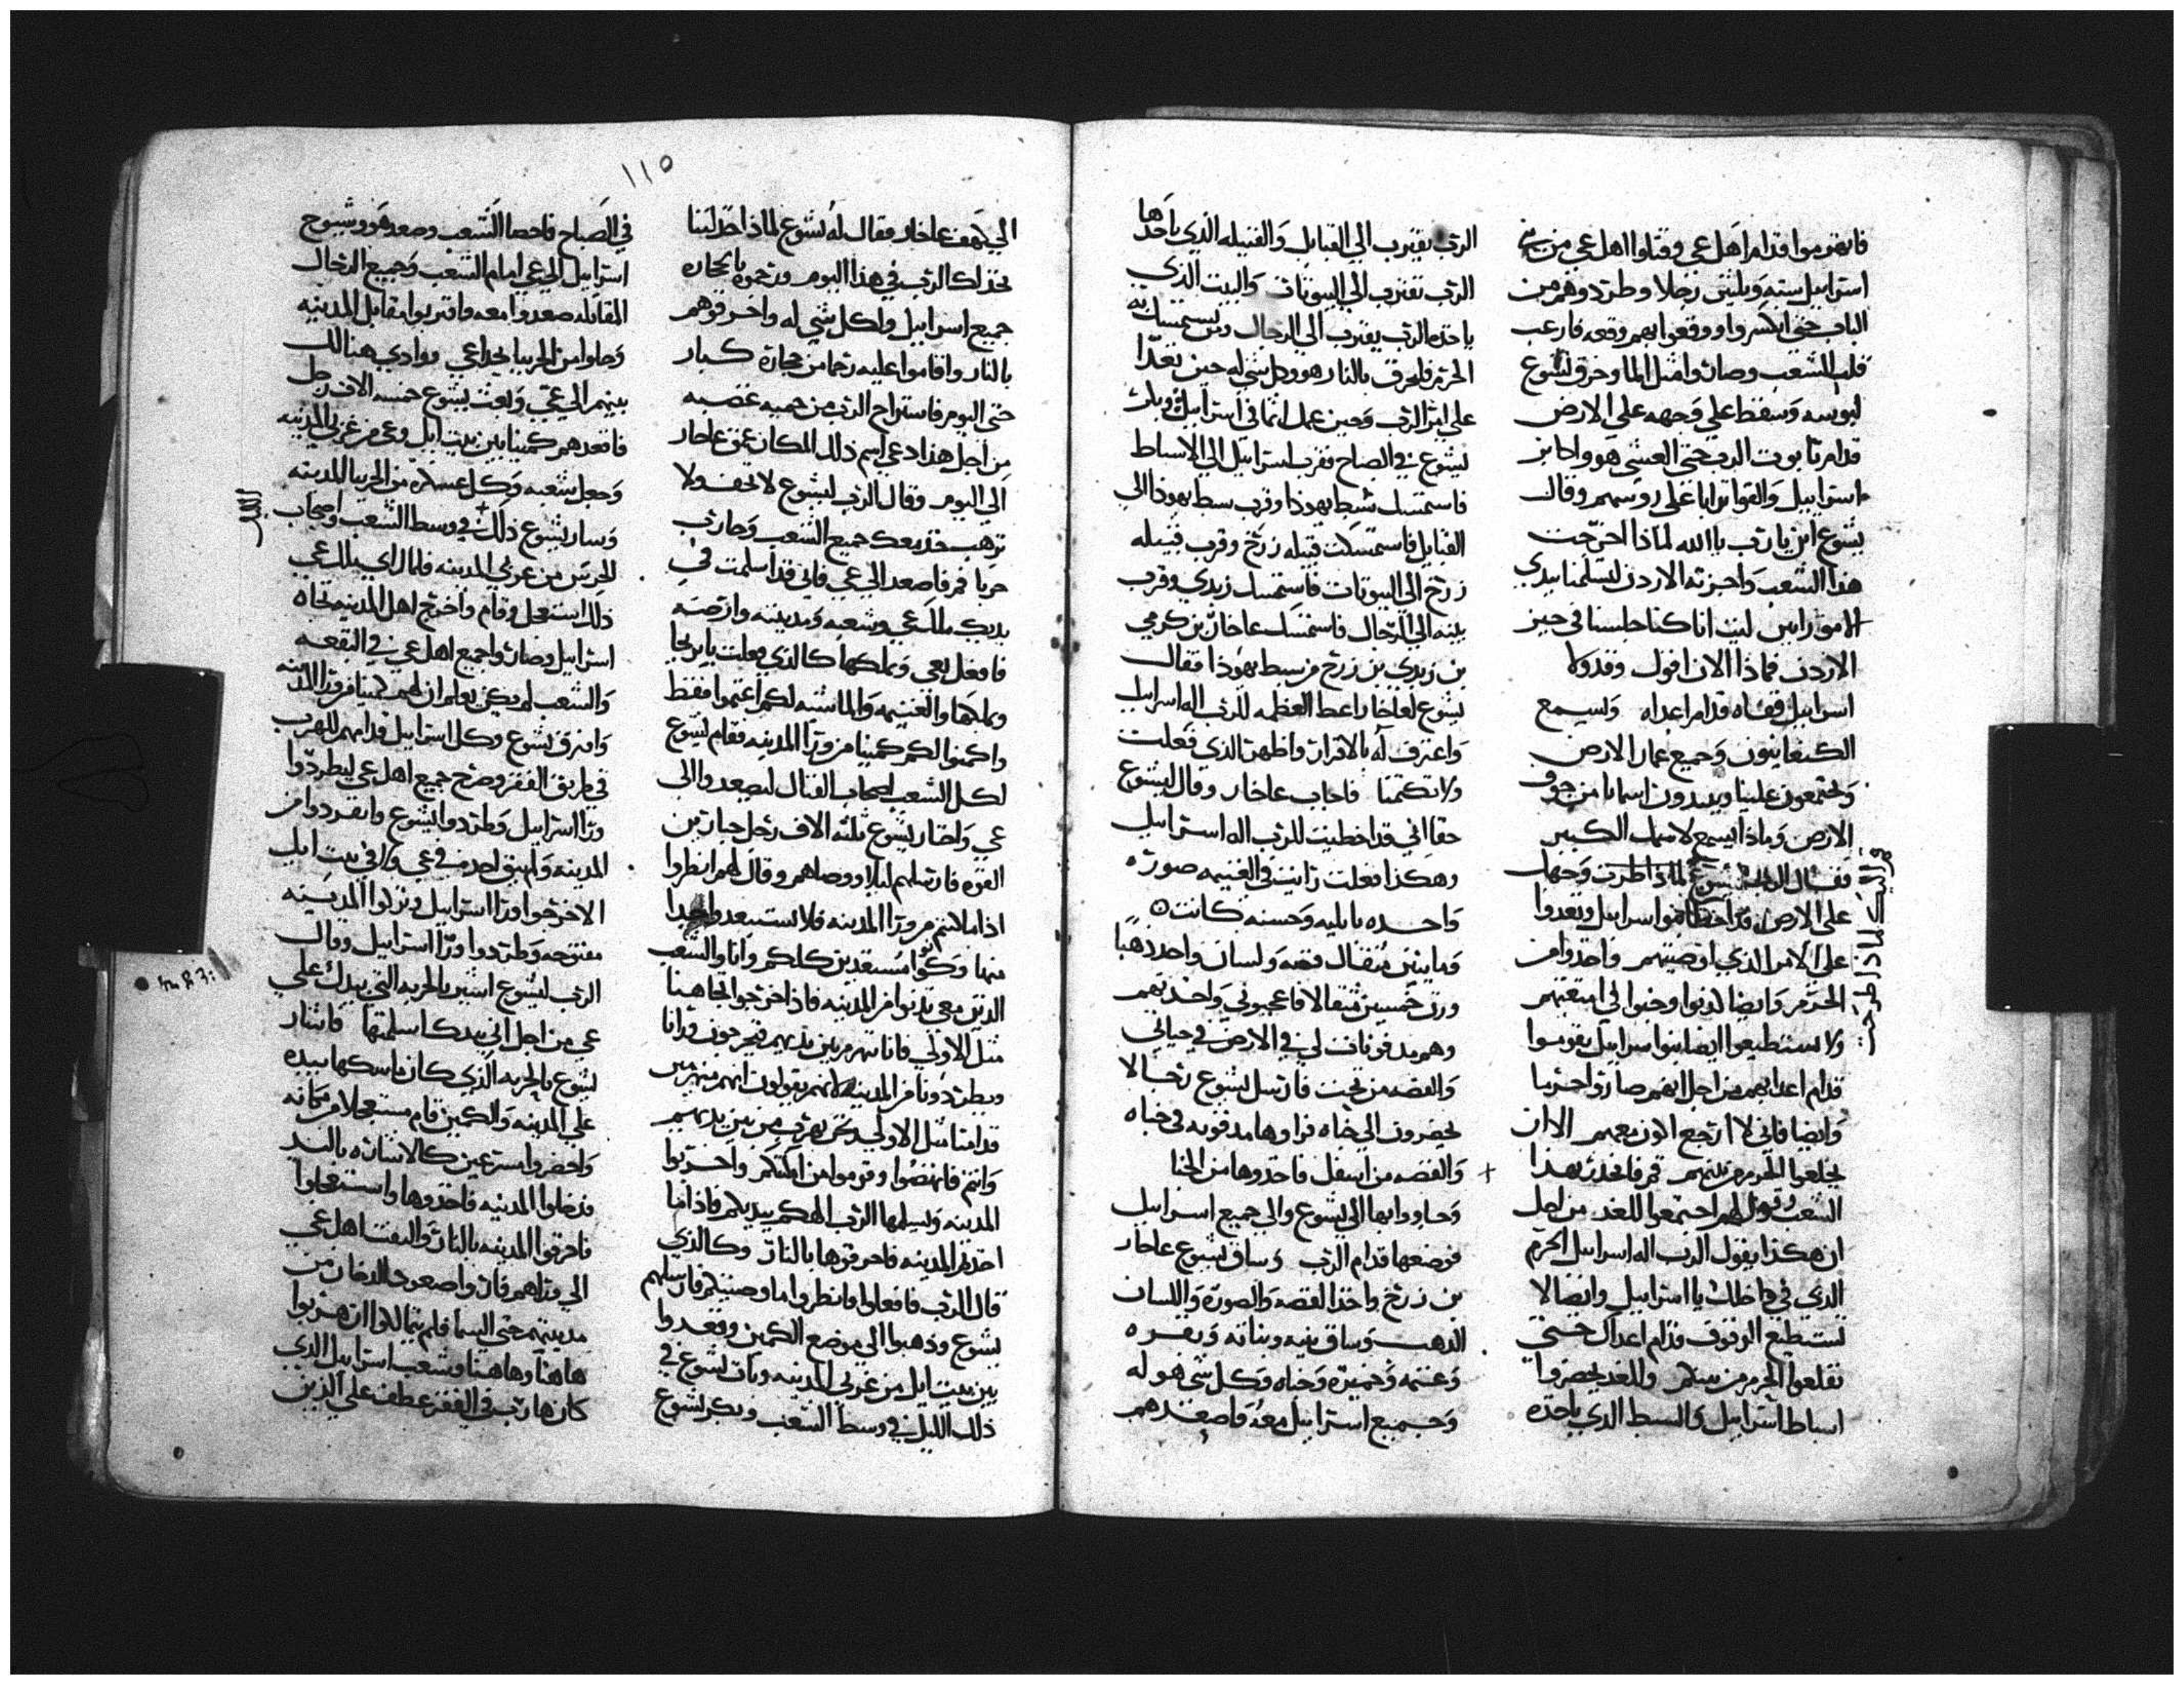 فانهزموا قدام اهل عي وقتلوا اهل عي من بني
اسراييل سته وثلثين رجلا وطردوهم من
الباب حتى انكسروا ووقعوا بهم وقعه فارعب
قلب الشعب وصاروا مثل الما وخرق يشوع
لبوسه وسقط علي وجهه علي الارض
قدام تابوت الرب حتى العشي هو واكابر
اسراييل والقوا ترابا على روسهم وقال
يشوع اين يا رب يا الله لماذا اخرجت
هذا الشعب واجزته الاردن لتسلمنا بيدي
الامورايين ليت انا كنا جلسنا في حيز
الاردن فماذا الان اقول وقد ولا
اسراييل قفاه قدام اعداه وسيمع
الكنعانيون وجميع عمار الارض
ويجتمعون علينا ويبيدون اسمانا من فوق
الارض وماذا يسمع لاسمك الكبير
فقال الرب ليشوع لماذا طرت وجهك
على الارض قد اخطاوا اسراييل وتعدوا
علي الامر الذي اوصيتهم واخذوا من
الحرم وايضا كذبوا وخبوا في امتعتهم
ولا يستطيعوا ايضا بنوا اسراييل يقوموا
قدام اعدايهم من اجل انهم صاروا حرما
وايضا فاني لا ارجع اكون معهم الا ان
يخلعوا الحرم من بينهم قم فانحدر بهذا
الشعب وقول لهم اجتمعوا للغد من اجل
ان هكذا يقول الرب اله اسراييل الحرم
الذي في داخلك يا اسراييل وايضا لا
تستطيع الوقوف قدام اعداك حتى
تقلعوا الحرم من بينكم وللغد يحضروا
اسباط اسراييل والسبط الذي ياخذه
الرب يقترب الي القبايل والقبيله الذي ياخذها
الرب تقترب الي البيوتات والبيت الذي
ياخذه الرب يقترب الي الرجال ومن يستمسك به
الحرم فليحرق بالنار هو وكل شي له حين تعدا
علي امر الرب وحين عمل اثما في اسراييل وبكر
يشوع في الصباح فقرب اسراييل الي الاسباط
فاستمسك سبط يهوذا وقرب سبط يهوذا الي
القبايل فاستمسكت قبيله زرخ وقرب قبيله
زرخ الي البيوتات فاستمسك زبدي وقرب
بيته الي الرجال فاستمسك عاخار بن كرمي
بن زبدي بن زرخ من سبط يهوذا فقال
يشوع لعاخار اعط العظمه للرب اله اسراييل
واعترف له بالاقرار واظهر الذي فعلت
ولا تكتمنا فاجاب عاخار وقال ليشوع
حقا اني قد اخطيت للرب اله اسراييل
وهكذا فعلت رايت في الغنيمه صوره
واحده بابليه وحسنه كانت
ومايتين مثقال فضه ولسان واحد ذهبا
وزن خمسين مثقالا فاعجبوني واخذتهم
وهم مدفونات لي في الارض في خباي
والفضه من تحت فارسل يشوع رجالا
يحضرون الي خباه فراوها مدفونه في خباه
والفضه من اسفل فاخذوها من الخبا
وجاووا بها الي يشوع والي جميع اسراييل
فوضعها قدام الرب وساق يشوع عاخار
بن زرخ واخذ الفضه والصوره واللسان
الذهب وساق بنيه وبناته وبقره
وغنمه وحميره وخباه وكل شي هو له
وجميع اسراييل معه فاصعدهم
١١٥
الي كهف عاخار فقال له يشوع لماذا
الرب في هذا اليوم ورجموه بالحجاره
جميع اسراييل ولكل شي له واحرقوهم
بالنار واقاموا عليه رجما من حجاره كبار
حتى اليوم فاستراح الرب من حميه غضبه
من اجل هذا دعي اسم ذلك المكان عمق عاخار
الي اليوم وقال الرب ليشوع لا تخف ولا
ترهب خذ معك جميع الشعب
حربا قم فاصعد الي عي فاني قد اسلمت في
يديك ملك عي وشعبه ومدينته وارضه
فافعل بعي وبملكها كالذي فعلت باريحا
وملكها والغنيمه والماشيه لكم اغتموا فقط
واكمنوا لكم كمينا من ورا المدينه فقام يشوع
لكل الشعب اصحاب القتال ليصعدوا الي
عي واختار يشوع ثلثه الاف رجل جبارين
القوه فارسلهم ليلا ووصاهم وقال لهم انظروا
اذا ما كمنتم من ورا المدينه فلا تستبعدوا جدا
منها وكونوا مستعدين كلكم وانا والشعب
الذين معي ندنوا من المدينه فاذا خرجوا تجاهنا
مثل الاولي فانا نهرب من بين يديهم فيخرجون ورانا
ويطردونا من المدينه لانهم يقولون انهم منهزمين
قدامنا مثل الاولي ونحن نهرب من بين يديهم
وانتم فانهضوا وقوموا من امكنتكم واخربوا
المدينه ويسلمها الرب الهكم بيديكم فاذا ما
اخذتم المدينه فاحرقوها بالنار وكالذي
قال الرب فافعلوا وانظروا ما اوصيتكم فارسلهم
يشوع وذهبوا الي موضع الكمين وقعدوا
بين بيت ايل من غربي المدينه وبات يشوع في
ذلك الليل في وسط الشعب وبكر يشوع
في الصباح فاحصا الشعب وصعد هو وشيوخ
اسراييل الي عي امام الشعب وجميع الرجال
المقاتله صعدوا معه واقتربوا مقابل المدينه
وحلوا من الجربيا بحدا عي ووادي هنالك
بينهم الي عي وبعث يشوع خمسه الاف رجل
فاقعدهم كمينا بين بيت ايل وعي من غربي المدينه
وجعل شعبه وكل عسكره من الجربيا للمدينه
وسار يشوع ذلك في وسط الشعب واصحاب
الليل
الحرس من غربي المدينه فلما راي ملك عي
ذلك استعجل وقام واخرج اهل المدينه تجاه
اسراييل وصاروا جميع اهل عي في البقعه
والشعب لم يكن يعلم ان لهم كمينا من ورا المدينه
وافترق يشوع وكل اسراييل قدامهم للهرب
في طريق القفر وصرخ جميع اهل عي ليطردوا
ورا اسراييل وطردوا يشوع وانفردوا من
المدينه ولم يبق احد في عي ولا في بيت ايل
الا خرجوا ورا اسراييل وتركوا المدينه
مفتوحه وطردوا ورا اسراييل وقال
الرب ليشوع اشير بالحربه التي بيدك علي
عي من اجل اني بيدك اسلمتها فاشار
يشوع بالحربه الذي كان ماسكها بيده
علي المدينه والكمين قام مستعجلا من مكانه
واحضروا مسرعين كالاشاره باليد
فدخلوا المدينه فاخذوها واستعجلوا
فاحرقوا المدينه بالنار والتفتا اهل عي
الي وراهم فاذا صعود الدخان من
مدينتهم حتى السما فلم يتمالكوا ان هربوا
هاهنا وهاهنا وشعب اسراييل الذي
كان هارب في القفر عطف علي الذين